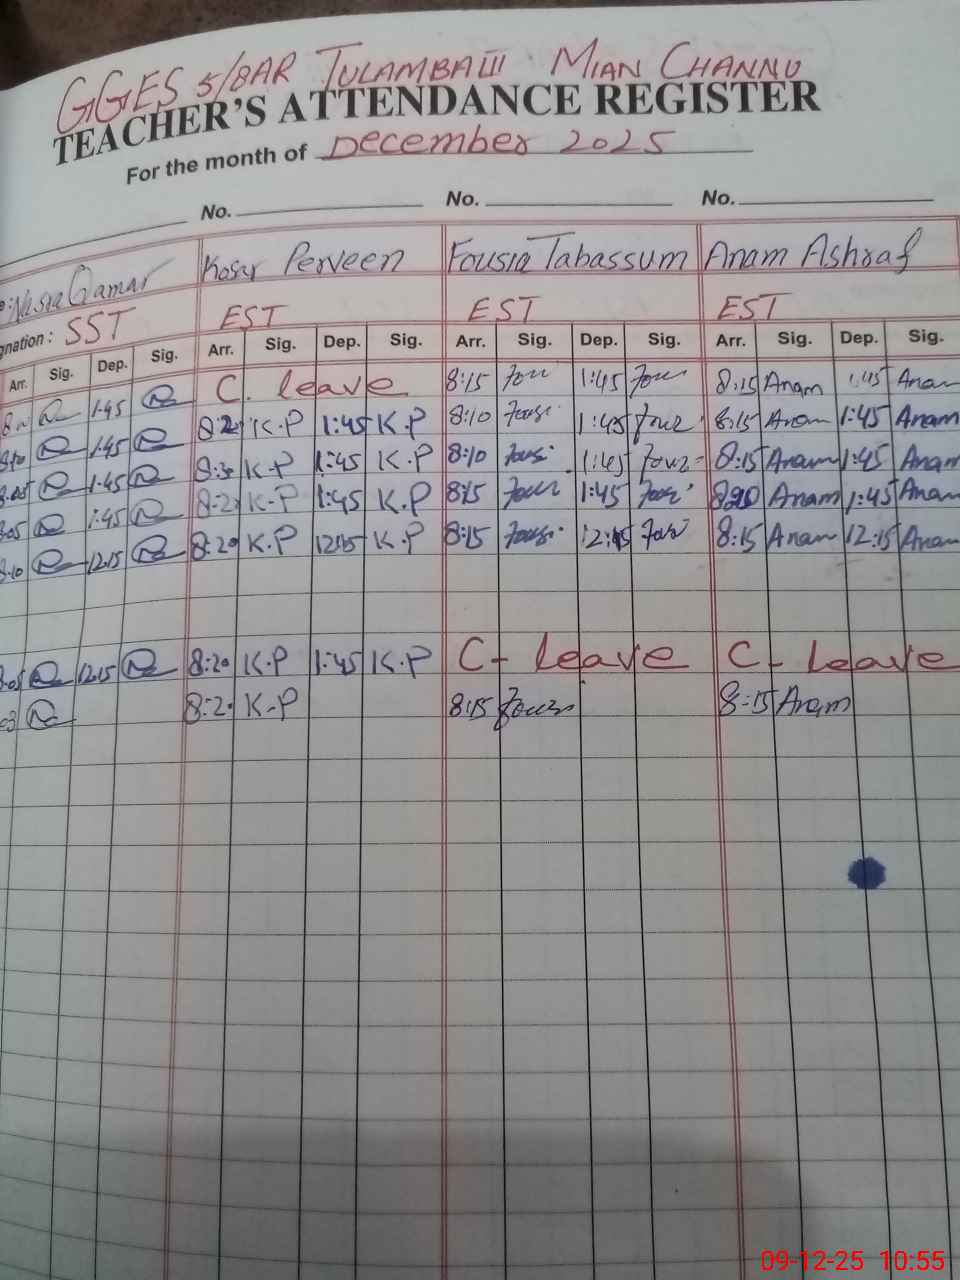 GGES 5/8AR TULAMBA III MIAN CHANNU
TEACHER'S ATTENDANCE REGISTER
For the month of December 2025
No. No. No.
Qamar Kosar Perveen Fousia Tabassum Anam Ashraf
gnation: SST EST EST EST
Arr. Sig. Dep. Sig. Arr. Sig. Dep. Sig. Arr. Sig. Dep. Sig. Arr. Sig. Dep. Sig.
1:45 C. leave 8:15 1:45 8:15 Anam 1:45 Anam
1:45 K.P 1:45 K.P 8:10 1:45 8:15 Anam 1:45 Anam
1:45 K.P 1:45 K.P 8:10 1:45 8:15 Anam 1:45 Anam
1:45 K.P 1:45 K.P 8:15 1:45 Anam 1:45 Anam
12:15 8:20 K.P 12:15 K.P 8:15 12:15 8:15 Anam 12:15 Anam
12:15 8:20 K.P 1:45 K.P C- leave C- leave
K.P 8:15 8:15 Anam
09-12-25 10:55